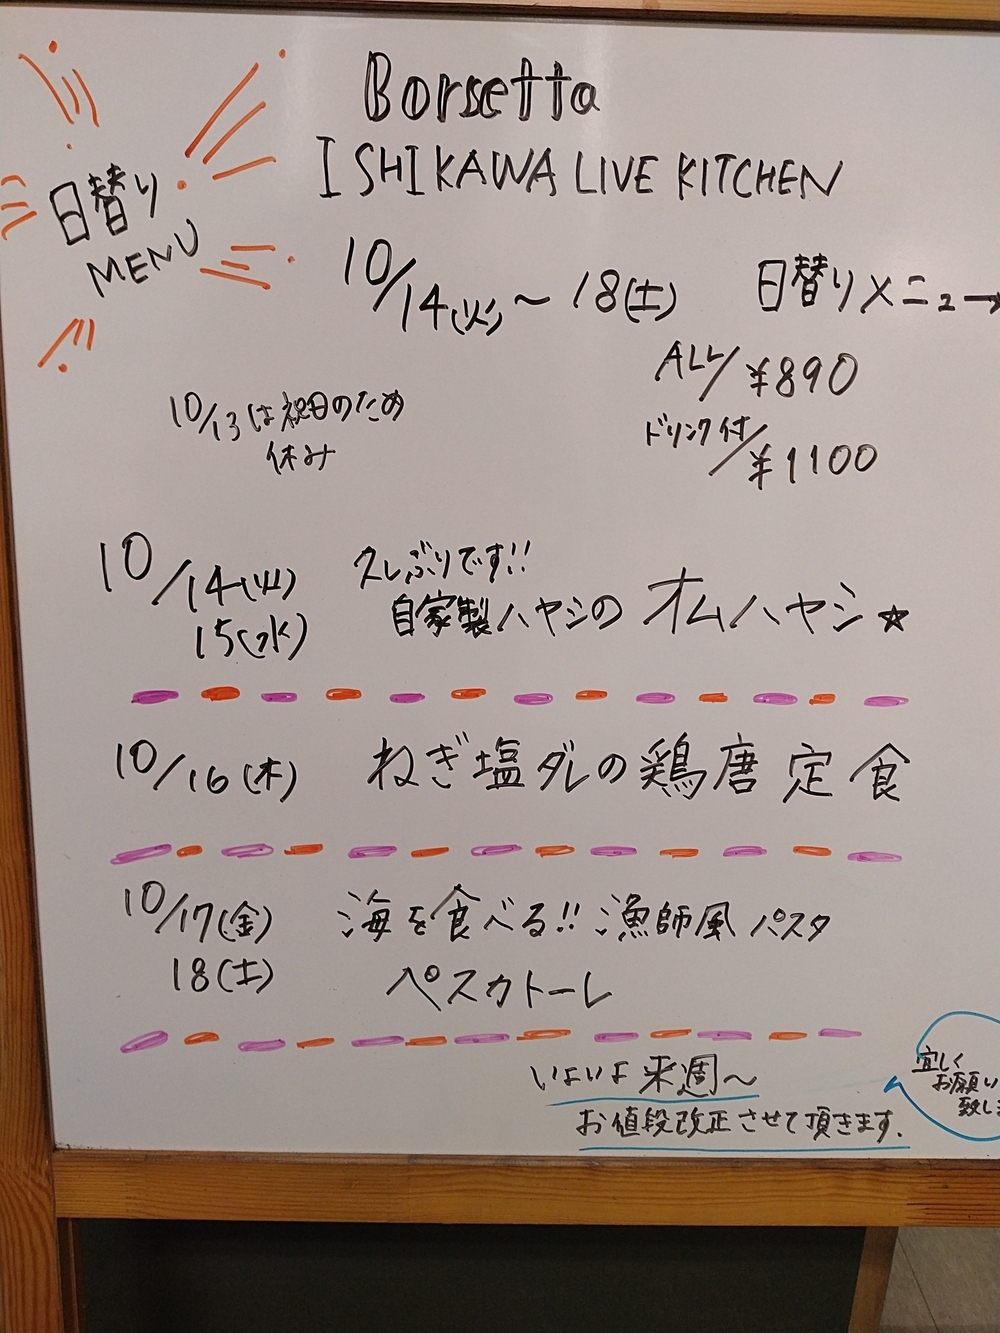 Borsetta
ISHIKAWA LIVE KITCHEN
日替り
MENU
10/14(火)～18(土) 日替りメニュー→
ALL/¥890
ドリンク付/¥1100
10/13は祝日のため
休み
10/14(火)
15(水)
久しぶりです!!
自家製ハヤシの オムハヤシ☆
10/16(木) ねぎ塩ダレの鶏唐定食
10/17(金) 海を食べる!! 漁師風パスタ
18(土) ペスカトーレ
いよいよ来週～
お値段改正させて頂きます.
宜しく
お願い
致しま